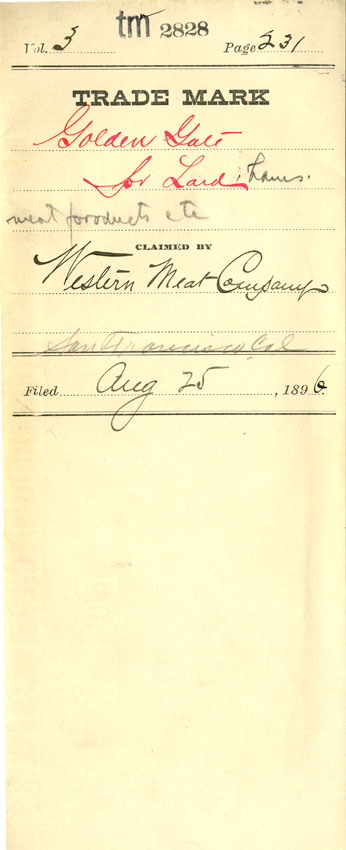 tm 2828
Vol. 3 Page 231
TRADE MARK
Golden Gate
for Lard, Hams.
meat products etc
CLAIMED BY
Western Meat Company
San Francisco, Cal
Filed Aug 25, 1896.